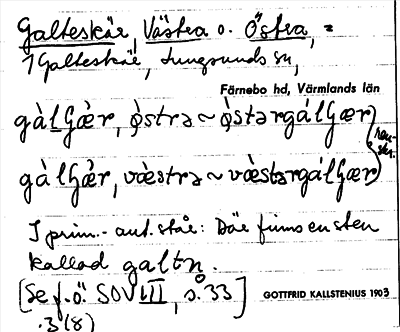 Galteskär, Västra o. Östra, =
1 Galteskär, Lungsunds sn,
Färnebo hd, Värmlands län
gàlʃæ̀r, ø̀stra ~ ø̀stərgálʃær
gàlʃæ̀r, væ̀stra ~ væ̀stərgálʃær
I prim.-ant. står: Där finns en sten
kallad galtn.
[Se f. ö. SOV III, s. 33]
GOTTFRID KALLSTENIUS 1903
.3 (8)